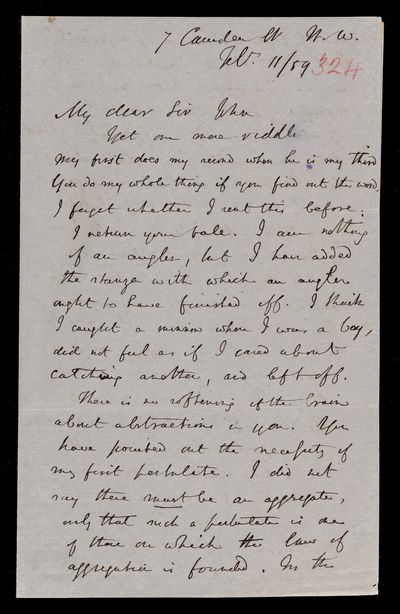 7 Camden St N.W.
Feby. 11/59 324
My dear Sir John
Yet one more riddle
My first does my second when he is my third
You do my whole thing if you find out the word.
I forget whether I sent this before:
I return your tale. I am nothing
of an angler, but I have added
the stanza with which an angler
ought to have finished off. I think
I caught a minnow when I was a boy,
did not feel as if I cared about
catching another, and left off.
There is no softening of the brain
about abstractions in you. You
have pointed out the necessity of
my first postulate. I did not
say there must be an aggregate,
only that such a postulate is one
of those on which the law of
aggregation is founded. In the